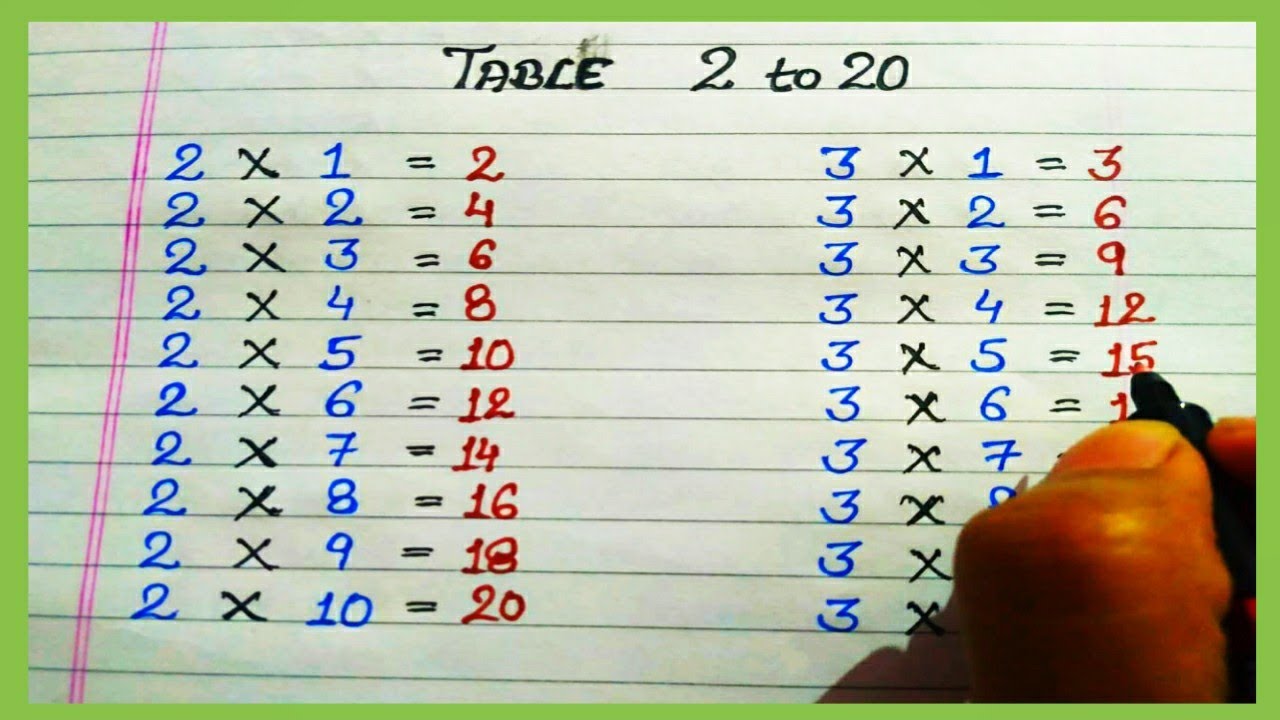 TABLE 2 to 20
2 × 1 = 2
2 × 2 = 4
2 × 3 = 6
2 × 4 = 8
2 × 5 = 10
2 × 6 = 12
2 × 7 = 14
2 × 8 = 16
2 × 9 = 18
2 × 10 = 20
3 × 1 = 3
3 × 2 = 6
3 × 3 = 9
3 × 4 = 12
3 × 5 = 15
3 × 6 = 1
3 × 7
3 ×
3 ×
3 ×